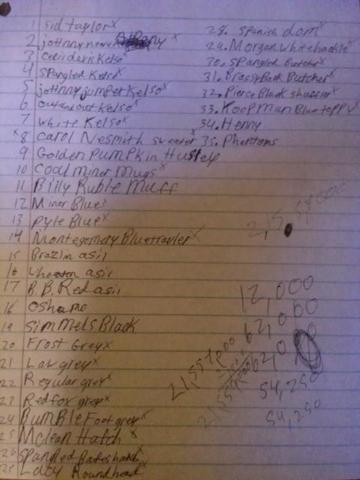 1 Sid taylor x
2 johnny
3 Kelso x
4 Spangled Kelso x
5 johnny jumper Kelso x
6 out Kelso x
7 White Kelso x
x8 Carol Nesmith sweater x
9 Golden Pumpkin Hulsey
10 Coal miner Mugs x
11 Billy Ruble Muff
12 Miner Blues
13 Pyle Blue x
14 Montegomery Bluetravler x
15 Brazlin asil
16 Wheaton asil
17 B.B. Red asil
18 oshamo
19 Simmels Black
20 Frost Grey x
21 Law grey x
22 Regular grey x
23 Red fox grey x
24 Bumble Foot grey x
25 Mclean Hatch x
Bates hatch x
Lacy Roundhead x
28. Spanish dom x
29. Morgan Whitehackle x
30. Spangled Butcher x
31. Brassy Back Butcher x
32. Pierce Black x
33. Koopman Bluetopp
34. Henny
35. Phantoms
12,000
62,000
54,250
54,250